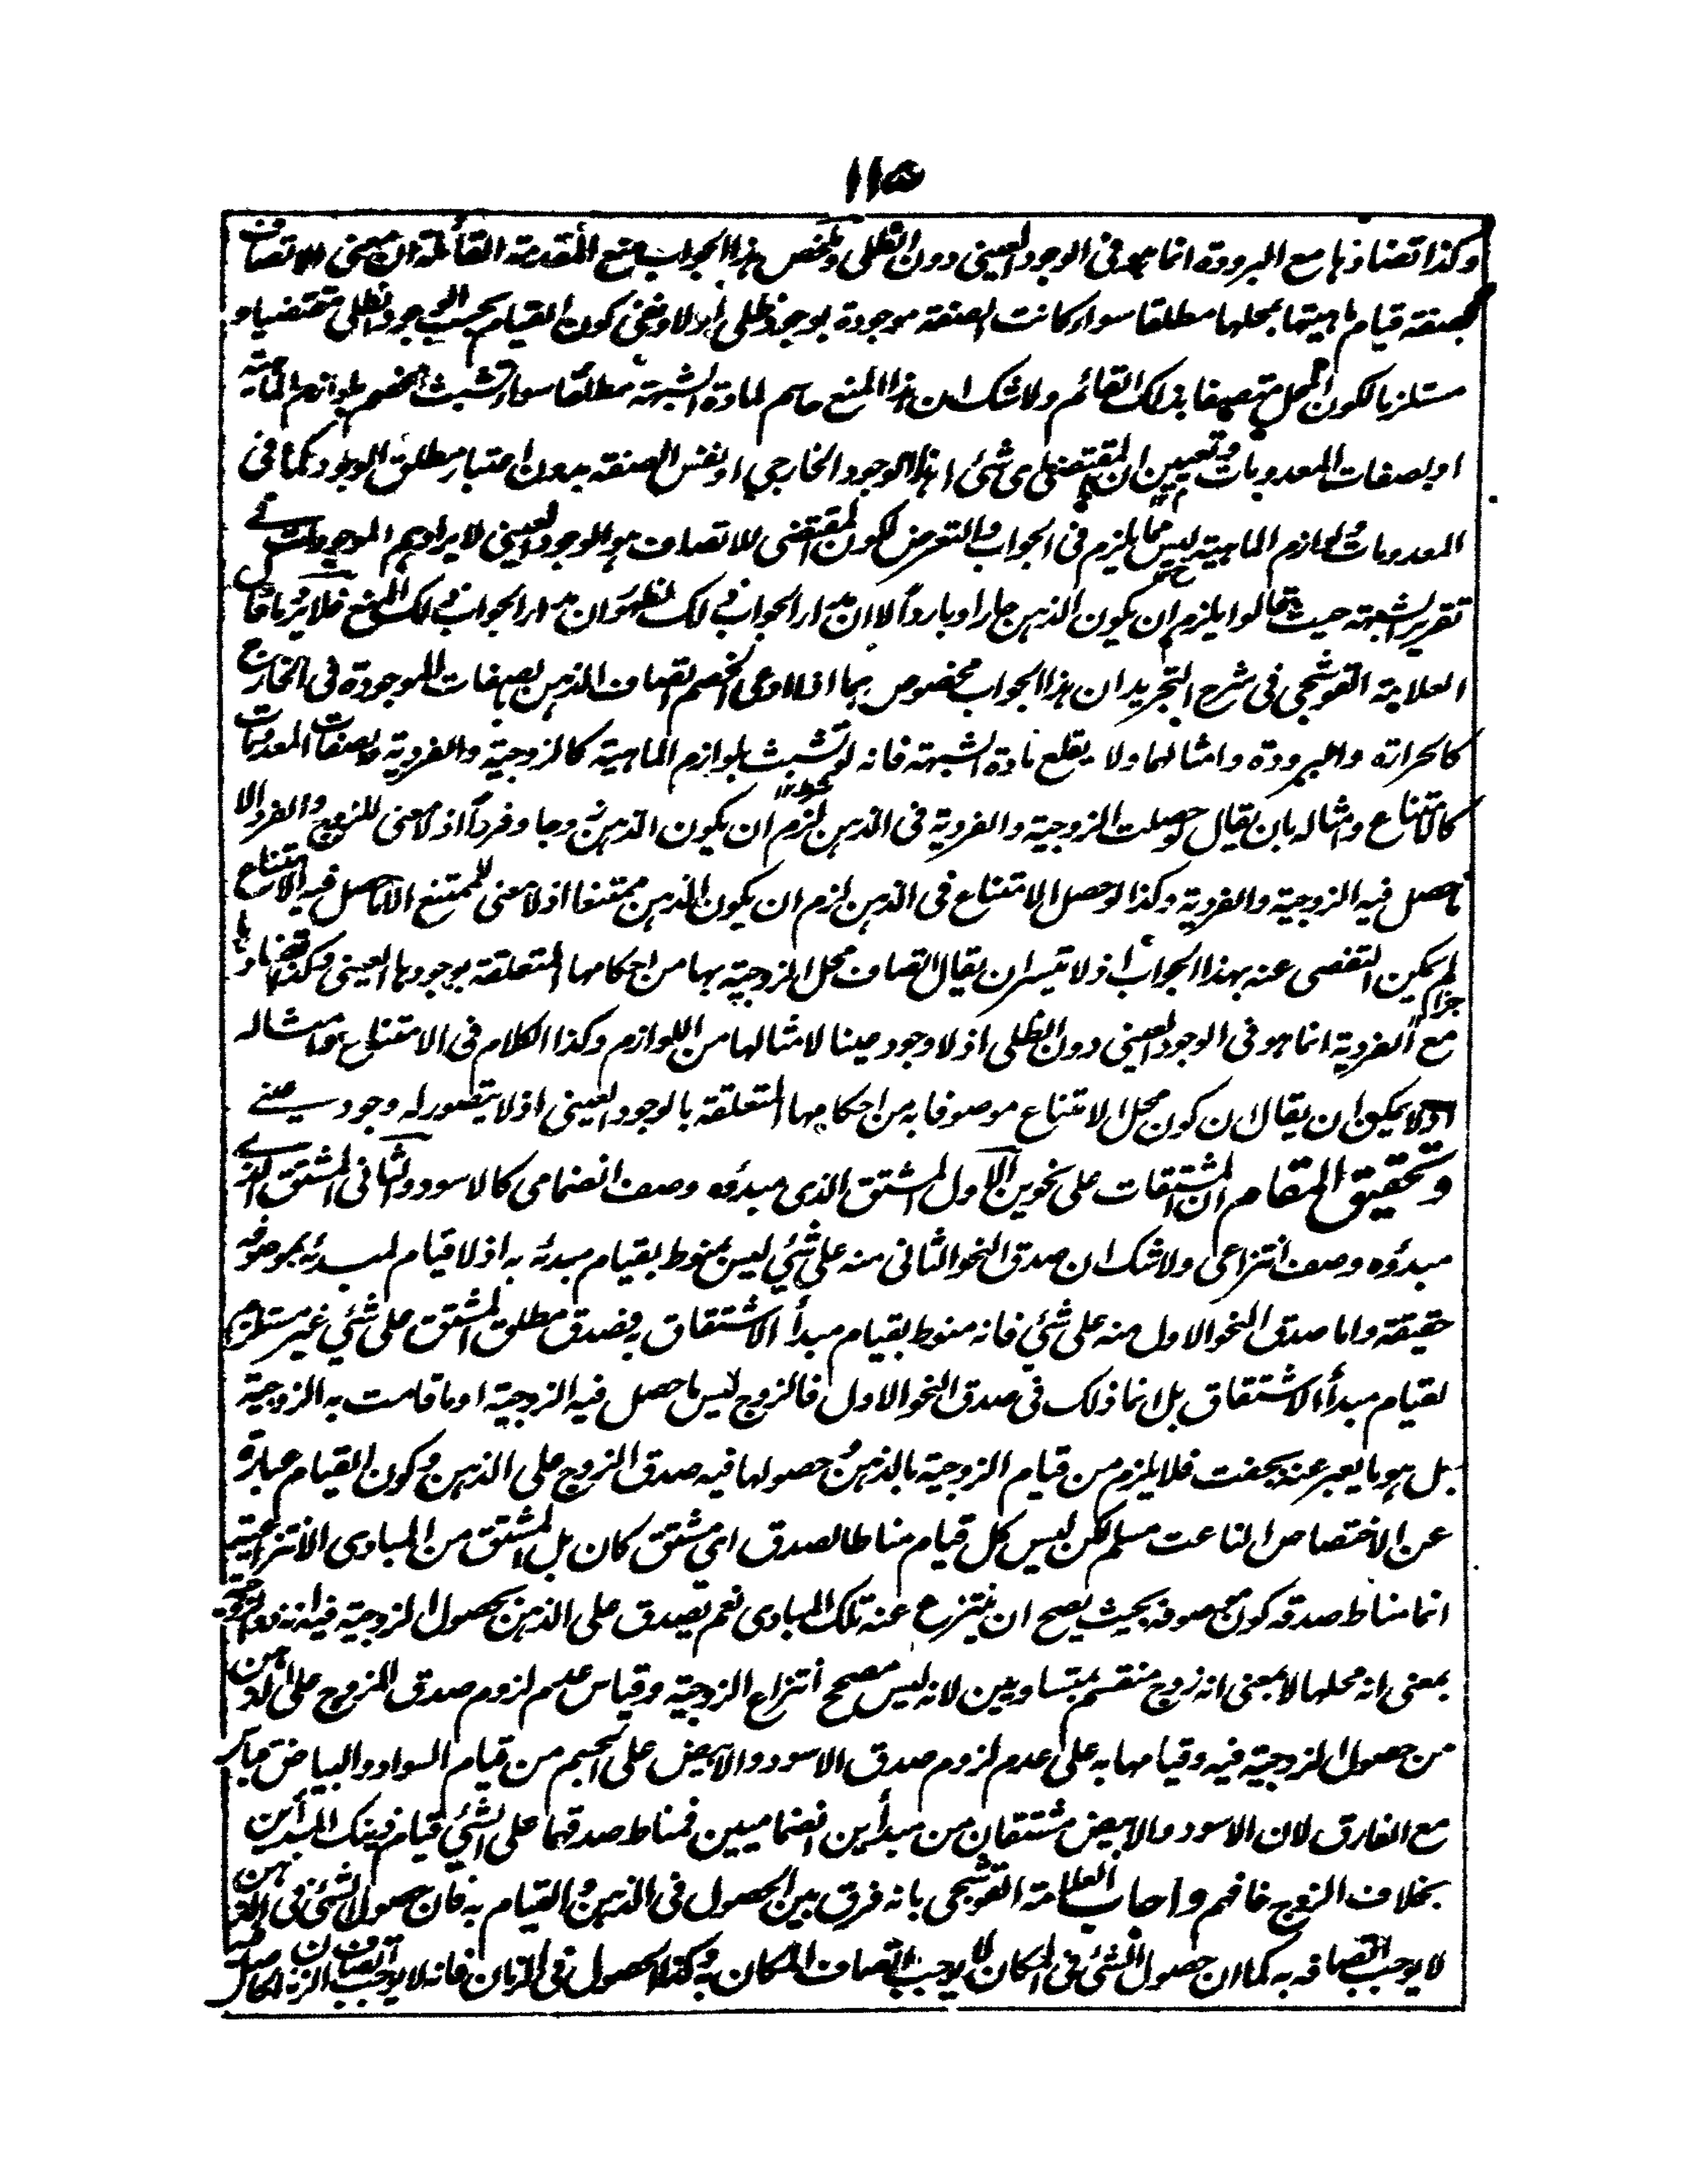 ١١٥
وكذا تضادها مع البرودة انما هو فى الوجود العينى دون الظلى وملخص هذا الجواب منع المقدمة القائلة ان معنى الاتصاف
بصفة قيام ماهيتها بمحلها مطلقا سواء كانت الصفة موجودة بوجود ظلى او لا ونفى كون القيام بحسب الوجود الظلى مقتضيا و
مستلزما لكون المحل متصفا بذلك القائم ولا شك ان هذا المنع حاسم لمادة الشبهة مطلقا سواء تشبث الخصم بلوازم الماهية
او بصفات المعدومات وتعيين ان المقتضى اى شئ اهذا الوجود الخارجى او نفس الصفة بدون اعتبار مطلق الوجود كما فى
المعدومات ولوازم الماهية ليس مما يلزم فى الجواب والتعرض لكون المقتضى للاتصاف هو الوجود العينى لايرادهم الموجودات فى
تقرير الشبهة حيث قالوا يلزم ان يكون الذهن حارا وباردا لا ان مدار الجواب ذلك فظهر ان مدار الجواب ذلك المنع فلا يرد ما قال
العلامة القوشجى فى شرح التجريد ان هذا الجواب مخصوص بما اذا ادعى الخصم اتصاف الذهن بصفات الموجودة فى الخارج
كالحرارة والبرودة وامثالهما ولا يقلع مادة الشبهة فانه لو تشبث بلوازم الماهية كالزوجية والفردية وبصفات المعدومات
كالامتناع وامثاله بان يقال لو حصلت الزوجية والفردية فى الذهن لزم ان يكون الذهن زوجا وفردا اذ لا معنى للزوج والفرد الا
ما حصل فيه الزوجية والفردية وكذا لو حصل الامتناع فى الذهن لزم ان يكون الذهن ممتنعا اذ لا معنى للممتنع الا ما حصل فيه الامتناع
لم يمكن التفصى عنه بهذا الجواب اذ لا تيسر ان يقال اتصاف محل الزوجية بها من احكامها المتعلقة بوجودها العينى وكذا تضادها
مع الفردية انما هو فى الوجود العينى دون الظلى اذ لا وجود عينا لامثالها من اللوازم وكذا الكلام فى الامتناع وامثاله
اذ لا يمكن ان يقال ان كون محل الامتناع موصوفا به من احكامها المتعلقة بالوجود العينى اذ لا يتصور له وجود عينى
وتحقيق المقام ان المشتقات على نحوين الاول المشتق الذى مبدؤه وصف انضمامى كالاسود والثانى المشتق الذى
مبدؤه وصف انتزاعى ولا شك ان صدق النحو الثانى منه على شئ ليس بمنوط بقيام مبدئه به اذ لا قيام لمبدئه بموصوفه
حقيقة واما صدق النحو الاول منه على شئ فانه منوط بقيام مبدأ الاشتقاق به فصدق مطلق المشتق على شئ غير مستلزم
لقيام مبدأ الاشتقاق بل انما ذلك فى صدق النحو الاول فالزوج ليس ما حصل فيه الزوجية او ما قامت به الزوجية
بل هو ما يعبر عنه بجفت فلا يلزم من قيام الزوجية بالذهن وحصولها فيه صدق الزوج على الذهن وكون القيام عبارة
عن الاختصاص الناعت مسلم لكن ليس كل قيام مناطا لصدق اى مشتق كان بل المشتق من المبادى الانتزاعية
انما مناط صدقه كون موصوفه بحيث يصح ان ينتزع عنه تلك المبادى نعم يصدق على الذهن بحصول الزوجية فيه انه ذو الزوجية
بمعنى انه محلها لا بمعنى انه زوج منقسم بمتساويين لانه ليس مصحح انتزاع الزوجية وقياس عدم لزوم صدق الزوج على الذهن
من حصول الزوجية فيه وقيامها به على عدم لزوم صدق الاسود والابيض على الجسم من قيام السواد والبياض قياس
مع الفارق لان الاسود والابيض مشتقان من مبدأين انضماميين فمناط صدقهما على الشئ قيام ذينك المبدأين
بخلاف الزوج فافهم واجاب العلامة القوشجى بانه فرق بين الحصول فى الذهن والقيام به فان حصول الشئ فى الذهن
لا يوجب اتصافه به كما ان حصول الشئ فى المكان لا يوجب اتصاف المكان به وكذا الحصول فى الزمان فانه لا يوجب اتصاف الزمان بالحاصل